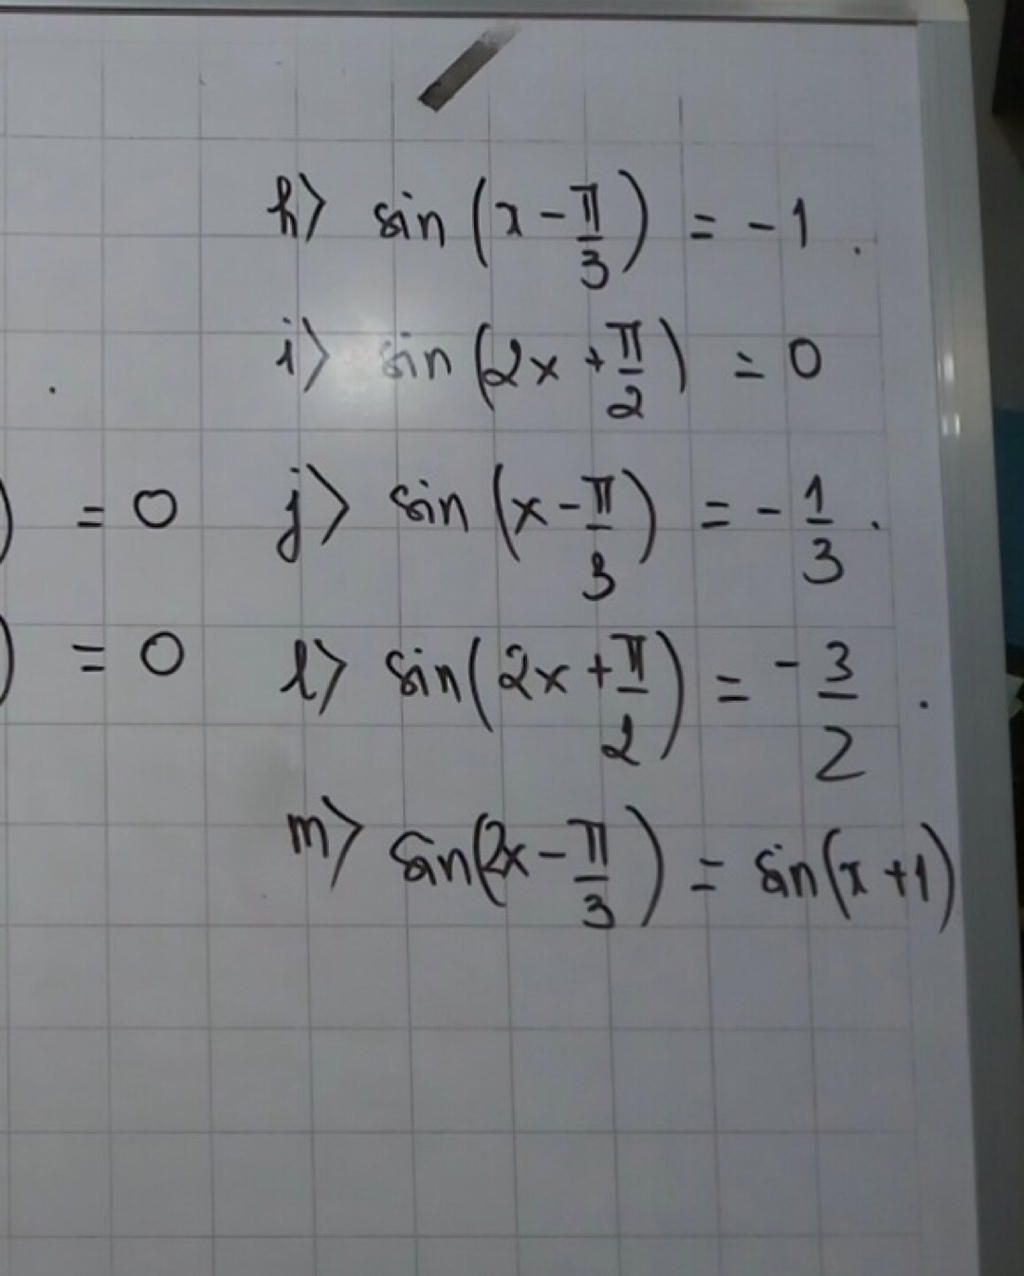 h) sin (x - π/3) = -1 .
i) sin (2x + π/2) = 0
) = 0 j) sin (x - π/3) = - 1/3 .
) = 0 l) sin (2x + π/2) = - 3/2 .
m) sin(2x - π/3) = sin(x + 1)